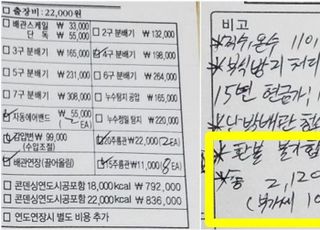 출장비: 22,000원
배관스케일 ₩ 33,000
단독 ₩ 55,000
2구 분배기 ₩ 132,000
3구 분배기 ₩ 165,000
4구 분배기 ₩ 198,000
5구 분배기 ₩ 231,000
6구 분배기 ₩ 264,000
7구 분배기 ₩ 308,000
누수탐지 공압 ₩ 165,000
자동에어밴드 ₩ 55,000 EA)
누수정밀 탐지 ₩ 220,000
감압변 ₩ 99,000
(수입조절)
20주름관 ₩22,000(2EA)
배관연장(끌어올림)
15주름관 ₩11,000(8EA)
콘덴싱연도시공포함 18,000kcal ₩ 792,000
콘덴싱연도시공포함 22,000kcal ₩ 836,000
연도연장시 별도 비용 추가
비고
*직수,온수 110,
*부식방지 처리
15년 현금가,
*난방배관 청
*환불 불가함
*총 2,120
(부가세 10